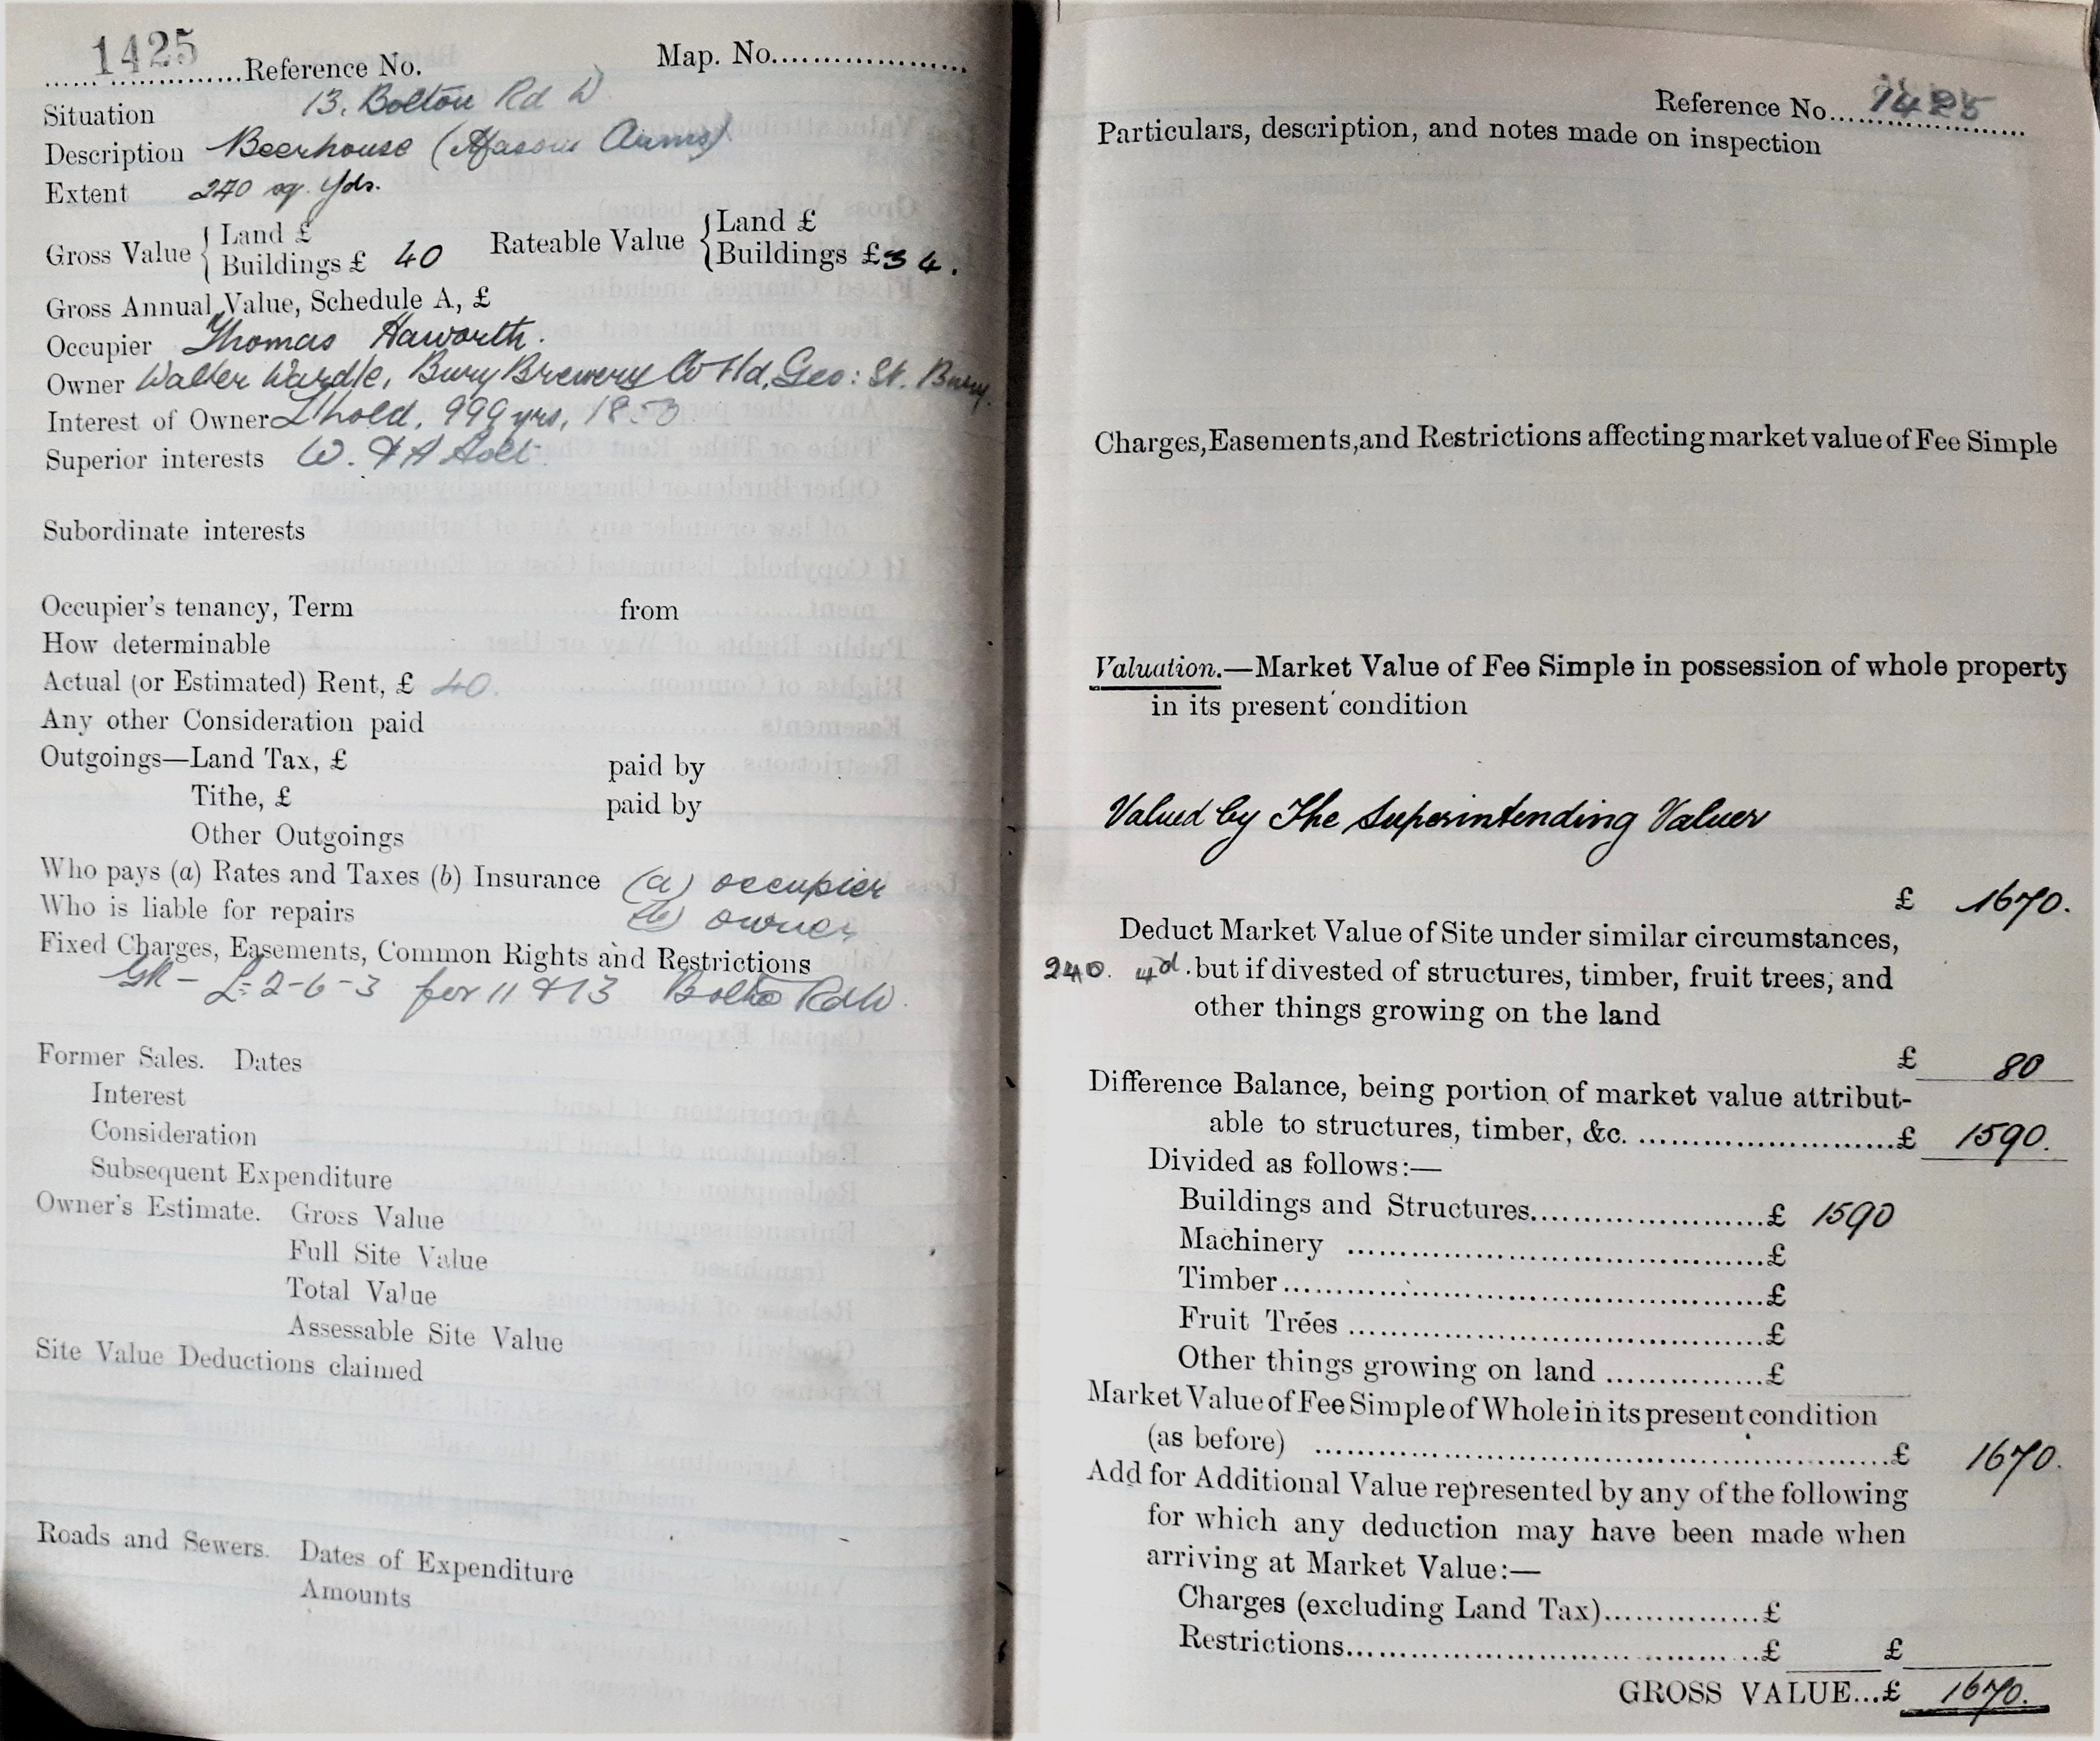 1425
Reference No. Map. No.
Situation 13. Bolton Rd W
Description Beerhouse (Masons Arms)
Extent 240 sq. Yds.
Gross Value { Land £
Buildings £ 40
Rateable Value { Land £
Buildings £ 34.
Gross Annual Value, Schedule A, £
Occupier Thomas Haworth.
Owner Walter Wardle, Bury Brewery Co Ltd, Geo: St. Bury.
Interest of Owner L'hold, 999 yrs,
Superior interests W. & A Holt
Subordinate interests
Occupier's tenancy, Term from
How determinable
Actual (or Estimated) Rent, £ 40.
Any other Consideration paid
Outgoings—Land Tax, £ paid by
Tithe, £ paid by
Other Outgoings
Who pays (a) Rates and Taxes (b) Insurance (a) occupier
Who is liable for repairs (b) owner
Fixed Charges, Easements, Common Rights and Restrictions
GR - £2-6-3 for 11 & 13 Bolton Rd W.
Former Sales. Dates
Interest
Consideration
Subsequent Expenditure
Owner's Estimate. Gross Value
Full Site Value
Total Value
Assessable Site Value
Site Value Deductions claimed
Roads and Sewers. Dates of Expenditure
Amounts
Reference No. 1425
Particulars, description, and notes made on inspection
Charges, Easements, and Restrictions affecting market value of Fee Simple
Valuation.—Market Value of Fee Simple in possession of whole property
in its present condition
Valued by The Superintending Valuer
£ 1670.
Deduct Market Value of Site under similar circumstances,
240. 4d. but if divested of structures, timber, fruit trees, and
other things growing on the land
£ 80
Difference Balance, being portion of market value attribut-
able to structures, timber, &c. £ 1590.
Divided as follows:—
Buildings and Structures £ 1590
Machinery £
Timber £
Fruit Trees £
Other things growing on land £
Market Value of Fee Simple of Whole in its present condition
(as before) £ 1670.
Add for Additional Value represented by any of the following
for which any deduction may have been made when
arriving at Market Value:—
Charges (excluding Land Tax) £
Restrictions £ £
GROSS VALUE...£ 1670.